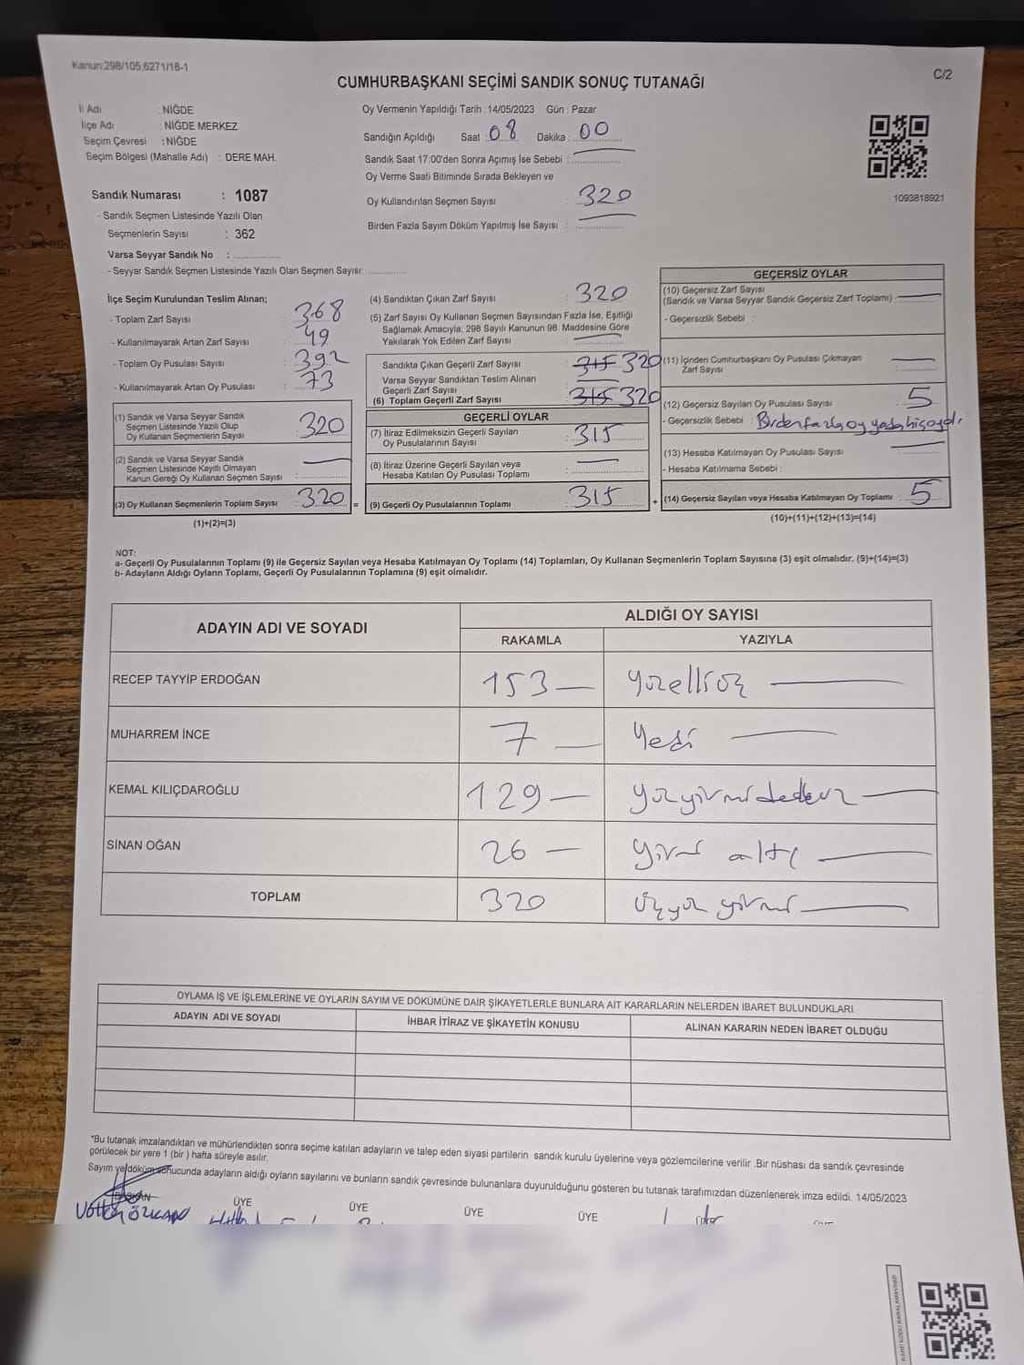 Kanun:298/105,6271/18-1
C/2
CUMHURBAŞKANI SEÇİMİ SANDIK SONUÇ TUTANAĞI
İl Adı : NİĞDE
İlçe Adı : NİĞDE MERKEZ
Seçim Çevresi : NİĞDE
Seçim Bölgesi (Mahalle Adı) : DERE MAH.
Oy Vermenin Yapıldığı Tarih :14/05/2023 Gün : Pazar
Sandığın Açıldığı Saat 08 Dakika : 00
Sandık Saat 17:00'den Sonra Açımış İse Sebebi :
Oy Verme Saati Bitiminde Sırada Bekleyen ve
Oy Kullandırılan Seçmen Sayısı : 320
Birden Fazla Sayım Döküm Yapılmış İse Sayısı :
1093818921
Sandık Numarası : 1087
- Sandık Seçmen Listesinde Yazılı Olan
Seçmenlerin Sayısı : 362
Varsa Seyyar Sandık No :
- Seyyar Sandık Seçmen Listesinde Yazılı Olan Seçmen Sayısı:
İlçe Seçim Kurulundan Teslim Alınan;
- Toplam Zarf Sayısı : 368
- Kullanılmayarak Artan Zarf Sayısı : 49
- Toplam Oy Pusulası Sayısı : 392
- Kullanılmayarak Artan Oy Pusulası : 73
(1) Sandık ve Varsa Seyyar Sandık
Seçmen Listesinde Yazılı Olup
Oy Kullanan Seçmenlerin Sayısı : 320
(2) Sandık ve Varsa Seyyar Sandık
Seçmen Listesinde Kayıtlı Olmayan
Kanun Gereği Oy Kullanan Seçmen Sayısı :
(3) Oy Kullanan Seçmenlerin Toplam Sayısı : 320
(1)+(2)=(3)
(4) Sandıktan Çıkan Zarf Sayısı : 320
(5) Zarf Sayısı Oy Kullanan Seçmen Sayısından Fazla İse, Eşitliği
Sağlamak Amacıyla; 298 Sayılı Kanunun 98. Maddesine Göre
Yakılarak Yok Edilen Zarf Sayısı :
Sandıkta Çıkan Geçerli Zarf Sayısı : 315 320
Varsa Seyyar Sandıktan Teslim Alınan
Geçerli Zarf Sayısı
(6) Toplam Geçerli Zarf Sayısı : 315 320
GEÇERLİ OYLAR
(7) İtiraz Edilmeksizin Geçerli Sayılan
Oy Pusulalarının Sayısı : 315
(8) İtiraz Üzerine Geçerli Sayılan veya
Hesaba Katılan Oy Pusulası Toplamı :
= (9) Geçerli Oy Pusulalarının Toplamı : 315
GEÇERSİZ OYLAR
(10) Geçersiz Zarf Sayısı
(Sandık ve Varsa Seyyar Sandık Geçersiz Zarf Toplamı) :
- Geçersizlik Sebebi :
(11) İçinden Cumhurbaşkanı Oy Pusulası Çıkmayan
Zarf Sayısı
(12) Geçersiz Sayılan Oy Pusulası Sayısı : 5
- Geçersizlik Sebebi : Birden fazla oy yada hiç oydı.
(13) Hesaba Katılmayan Oy Pusulası Sayısı
- Hesaba Katılmama Sebebi :
+ (14) Geçersiz Sayılan veya Hesaba Katılmayan Oy Toplamı : 5
(10)+(11)+(12)+(13)=(14)
NOT:
a- Geçerli Oy Pusulalarının Toplamı (9) ile Geçersiz Sayılan veya Hesaba Katılmayan Oy Toplamı (14) Toplamları, Oy Kullanan Seçmenlerin Toplam Sayısına (3) eşit olmalıdır. (9)+(14)=(3)
b- Adayların Aldığı Oyların Toplamı, Geçerli Oy Pusulalarının Toplamına (9) eşit olmalıdır.
ADAYIN ADI VE SOYADI
ALDIĞI OY SAYISI
RAKAMLA YAZIYLA
RECEP TAYYİP ERDOĞAN 153 yüzelliüç
MUHARREM İNCE 7 Yedi
KEMAL KILIÇDAROĞLU 129 yüzyirmidokuz
SİNAN OĞAN 26 yirmi altı
TOPLAM 320 üçyüz yirmi
OYLAMA İŞ VE İŞLEMLERİNE VE OYLARIN SAYIM VE DÖKÜMÜNE DAİR ŞİKAYETLERLE BUNLARA AİT KARARLARIN NELERDEN İBARET BULUNDUKLARI
ADAYIN ADI VE SOYADI İHBAR İTİRAZ VE ŞİKAYETİN KONUSU ALINAN KARARIN NEDEN İBARET OLDUĞU
*Bu tutanak imzalandıktan ve mühürlendikten sonra seçime katılan adayların ve talep eden siyasi partilerin sandık kurulu üyelerine veya gözlemcilerine verilir .Bir nüshası da sandık çevresinde
görülecek bir yere 1 (bir ) hafta süreyle asılır.
Sayım ve döküm sonucunda adayların aldığı oyların sayılarını ve bunların sandık çevresinde bulunanlara duyurulduğunu gösteren bu tutanak tarafımızdan düzenlenerek imza edildi. 14/05/2023
BAŞKAN ÜYE ÜYE ÜYE ÜYE
ÖZKAN